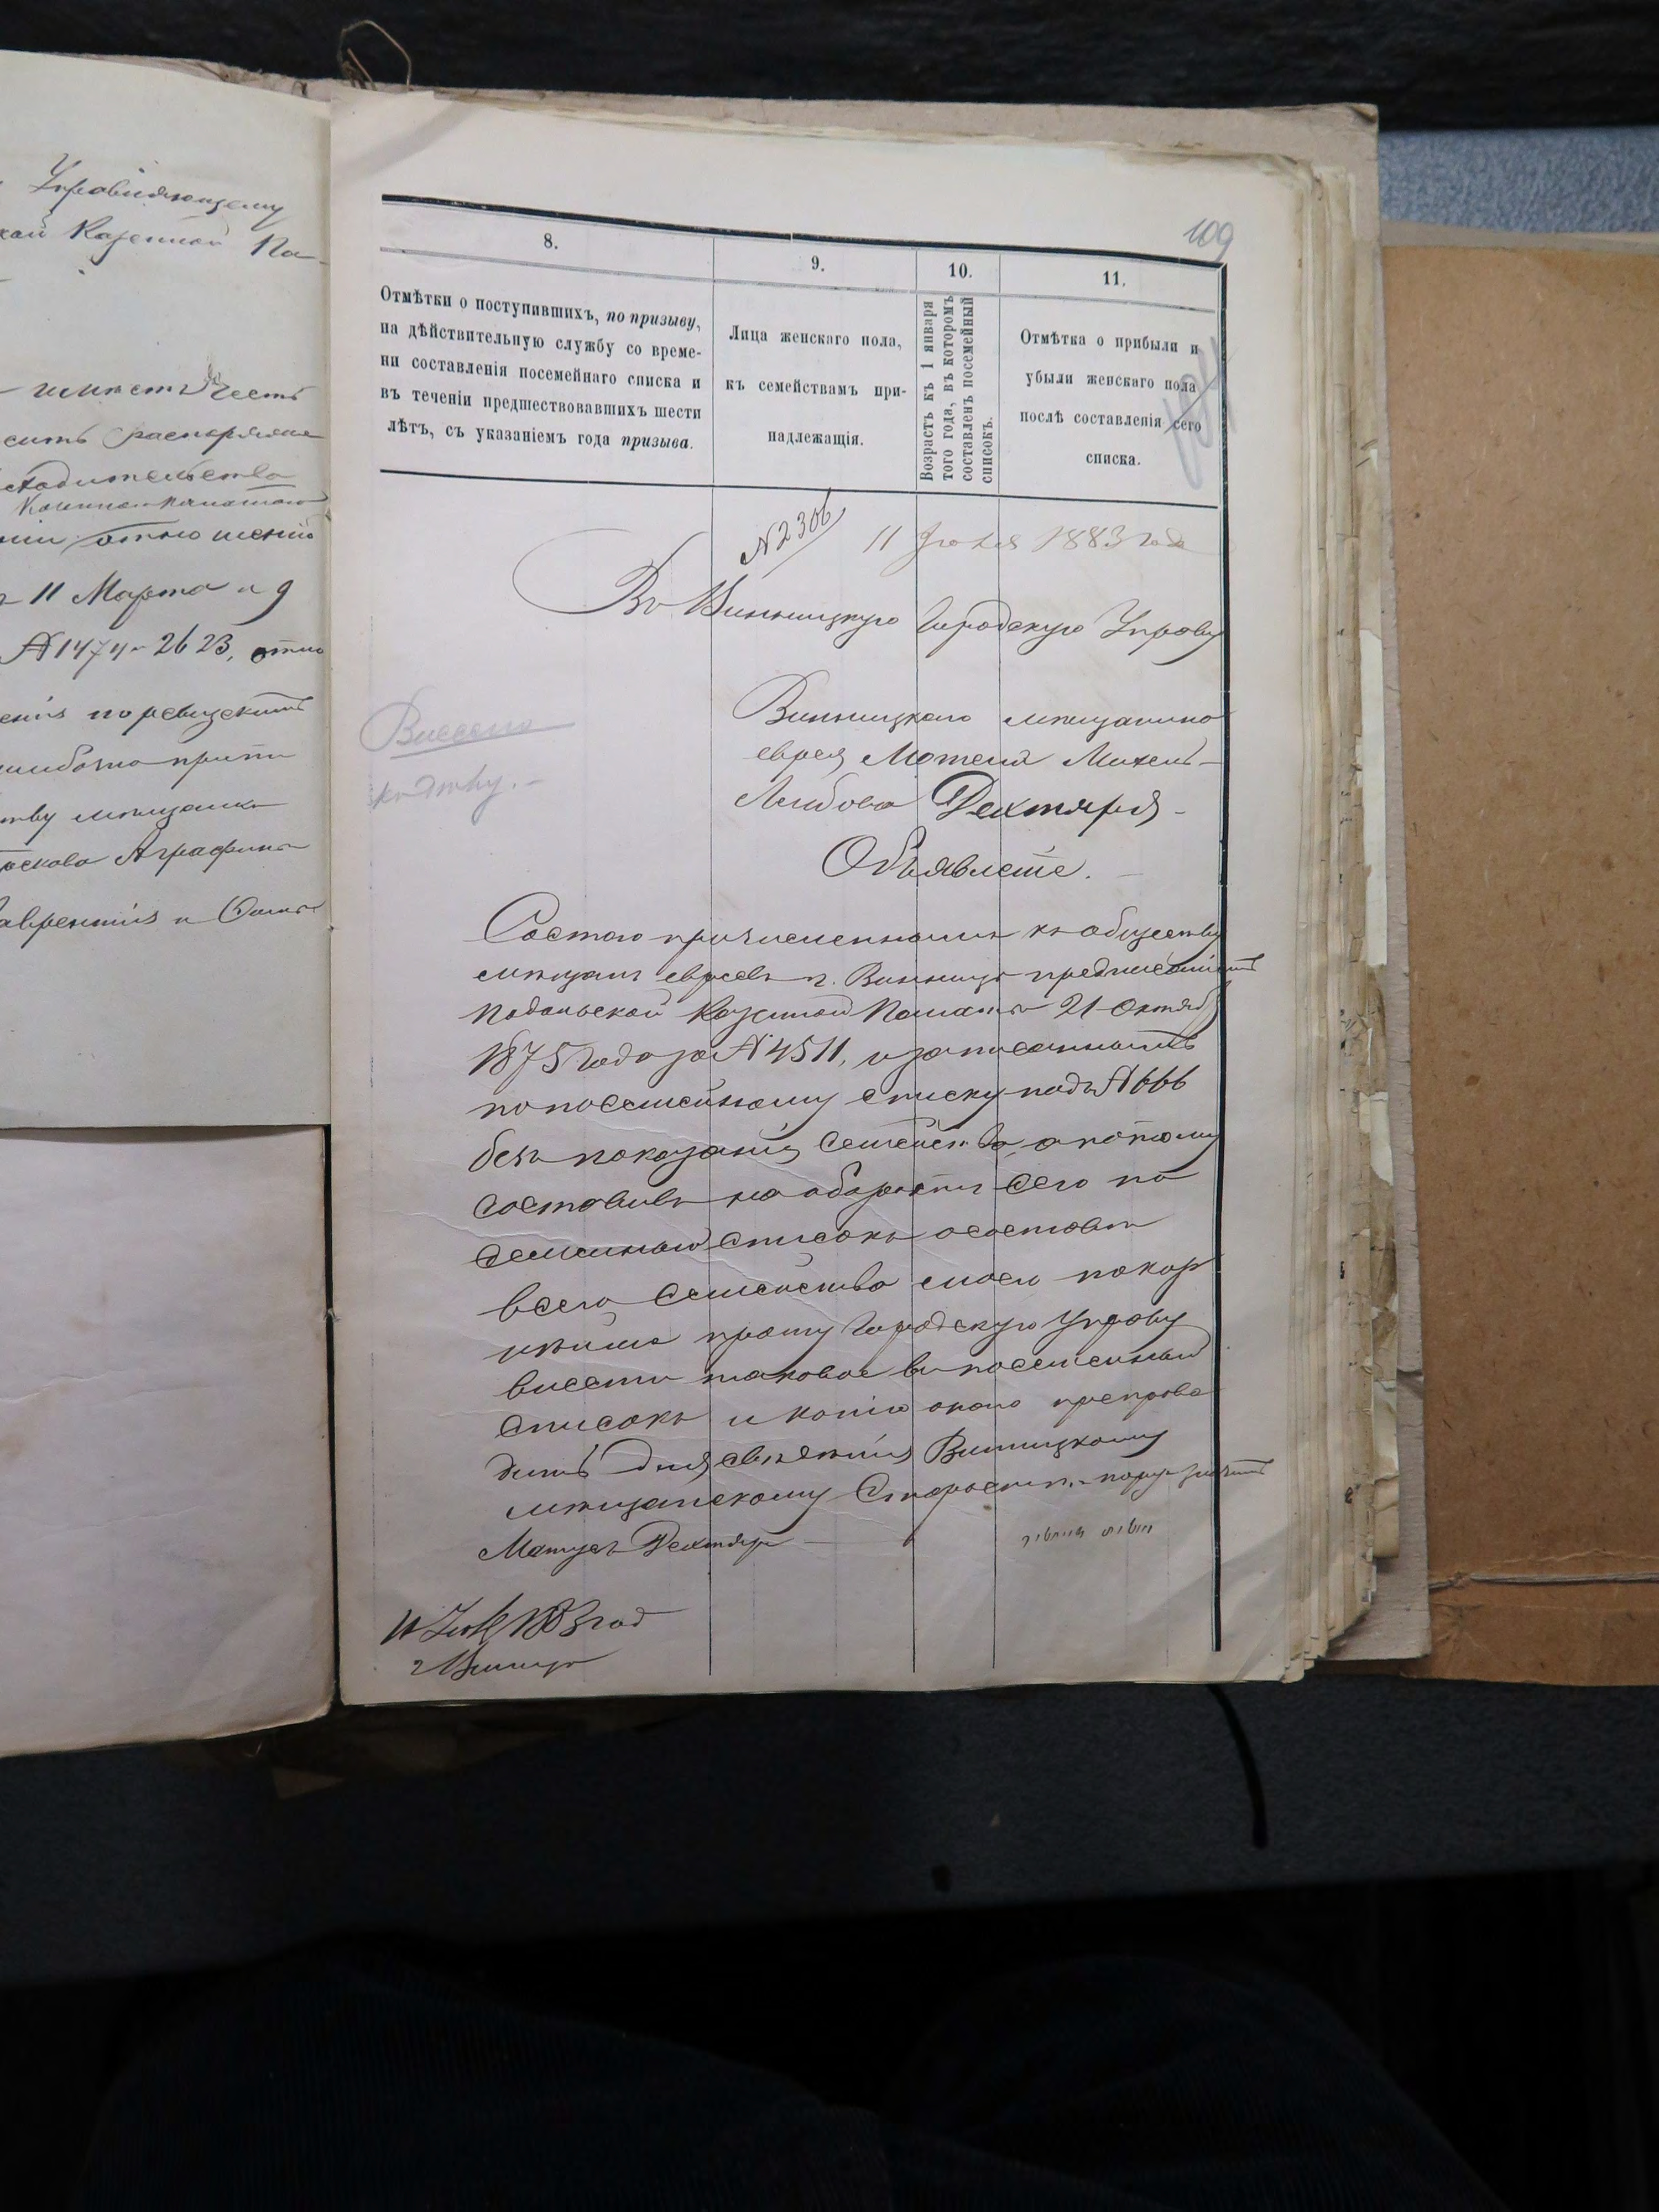 Управляющему
кой Казенной Па-
имѣетъ честь
сить распоряже
ходительства
Казенной Палатою
отношенiй
11 Марта и 9
№ 1474 и 2623, отно
енiя по ревизскимъ
ошибочно припи
мѣщанки
Аграфина
аврентiя и
109
8.
9.
10.
11.
Отмѣтки о поступившихъ, по призыву,
на дѣйствительную службу со време-
ни составленія посемейнаго списка и
въ теченіи предшествовавшихъ шести
лѣтъ, съ указаніемъ года призыва.
Лица женскаго пола,
къ семействамъ при-
надлежащія.
Возрастъ къ 1 января
того года, въ которомъ
составленъ посемейный
списокъ.
Отмѣтка о прибыли и
убыли женскаго пола
послѣ составленія сего
списка.
№ 2306
11 Іюля 1883 года
Въ Винницкую Городскую Управу
Внесено
Винницкаго мѣщанина
еврея Мотеля Михель-
Лейбова Дехтяря -
Объявленіе. -
Состою причисленнымъ къ обществу
мѣщанъ евреевъ г. Винницы предписаніемъ
Подольской Казенной Палаты 21 Октяб
1875 года за № 4511, и записаннымъ
по посемейному списку подъ № 666
безъ показанія семейства, а потому
составивъ на оборотѣ сего по
семейный списокъ о составѣ
всего семейства моего покор
нѣйше прошу Городскую Управу
внести таковое въ посемейный
списокъ и копію онаго препрово
дить для свѣденія Винницкому
мѣщанскому Старостѣ.
Матусъ Дехтяръ
11 Іюля 1883 год
г Винница